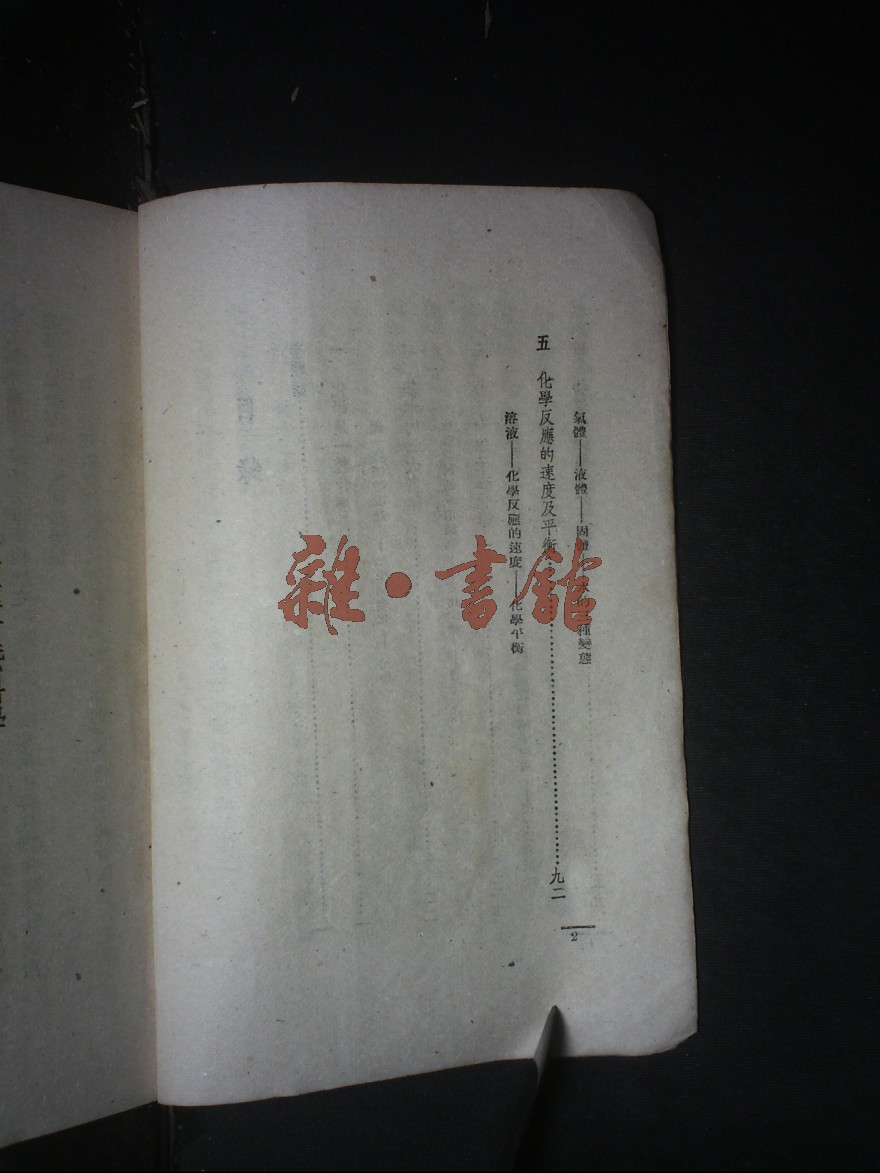 氣體——液體——固體 種變態
五 化學反應的速度及平衡……九二
溶液——化學反應的速度——化學平衡
2
雜·書館